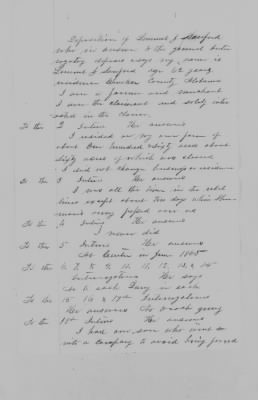 Deposition of Lemuel J. Sanford
who in answer to the general inter
rogatory deposes & says my name is
Lemuel J. Sanford age 62 years
residence Cherokee County Alabama
I am a farmer and merchant
I am the claimant and solely inter
ested in the claim
To the 2 Interr He answers
I resided on my own farm of
about One hundred & sixty acres about
sixty acres of which was cleared
I did not change business or residence
To the 3 Interr He answers
I was all the time in the rebel
lines except about two days when Sher
mans army passed over us
To the 4 Interg He answers
I never did
To the 5 Interr He answers
At Center in June 1865
To the 6, 7, 8, 9, 10, 11, 12, 13, & 14
Interrogatories He says
No to each & every one
To the 15 16 & 17th Interrogatories
He answers No to each query
To the 18th Interr He answers
I had one son who went
into a company to avoid being forced